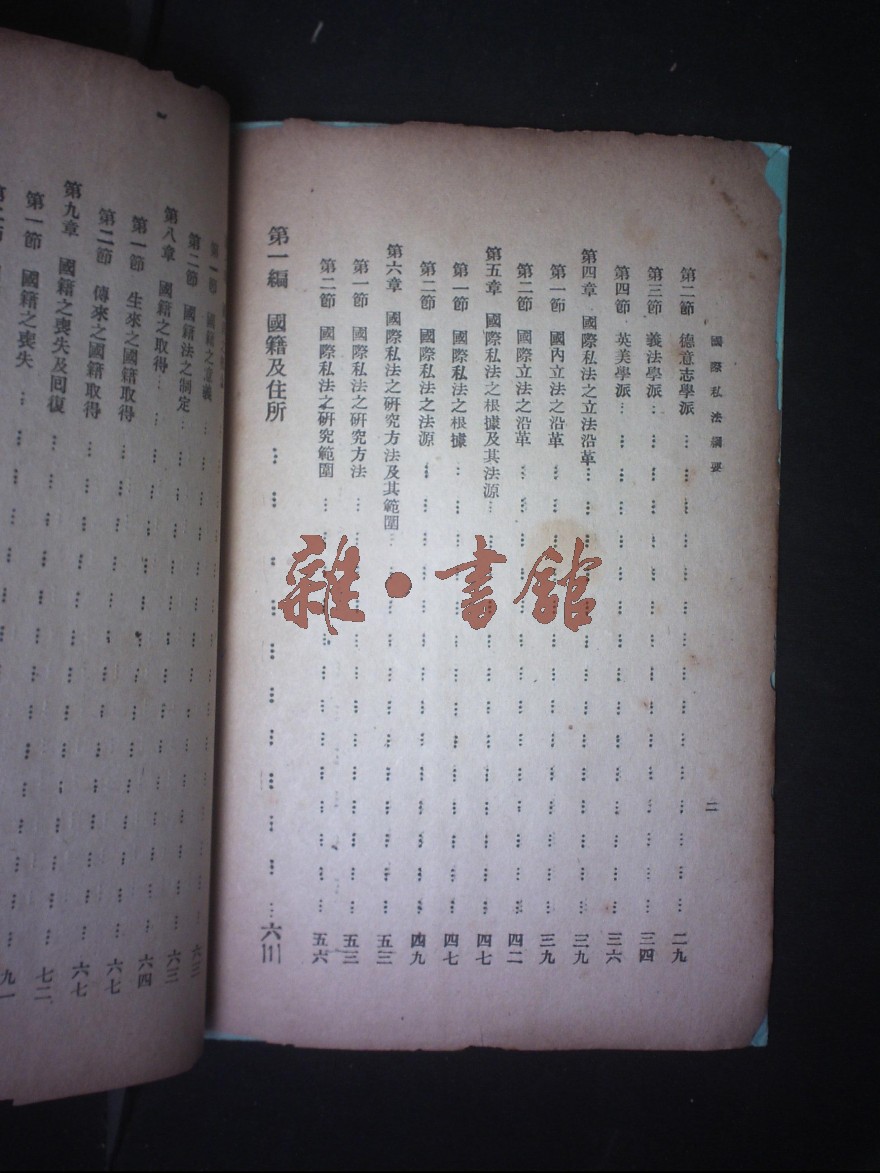 國際私法綱要
二
第二節 德意志學派 二九
第三節 義法學派 三四
第四節 英美學派 三六
第四章 國際私法之立法沿革 三九
第一節 國內立法之沿革 三九
第二節 國際立法之沿革 四二
第五章 國際私法之根據及其法源 四七
第一節 國際私法之根據 四七
第二節 國際私法之法源 四九
第六章 國際私法之硏究方法及其範圍 五三
第一節 國際私法之硏究方法 五三
第二節 國際私法之硏究範圍 五六
第一編 國籍及住所 六三
雜·書館
第一節 國籍之意義 六三
第二節 國籍法之制定 六三
第八章 國籍之取得 六四
第一節 生來之國籍取得 六七
第二節 傳來之國籍取得 六七
第九章 國籍之喪失及回復 七二
第一節 國籍之喪失 九一